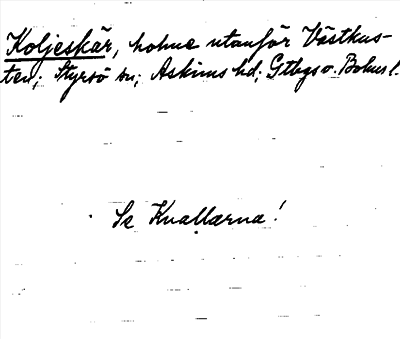 Koljeskär, holme utanför Västkus-
ten; Styrsö sn; Askims hd; Gtbgs o. Bohus l.
Se Knallarna!